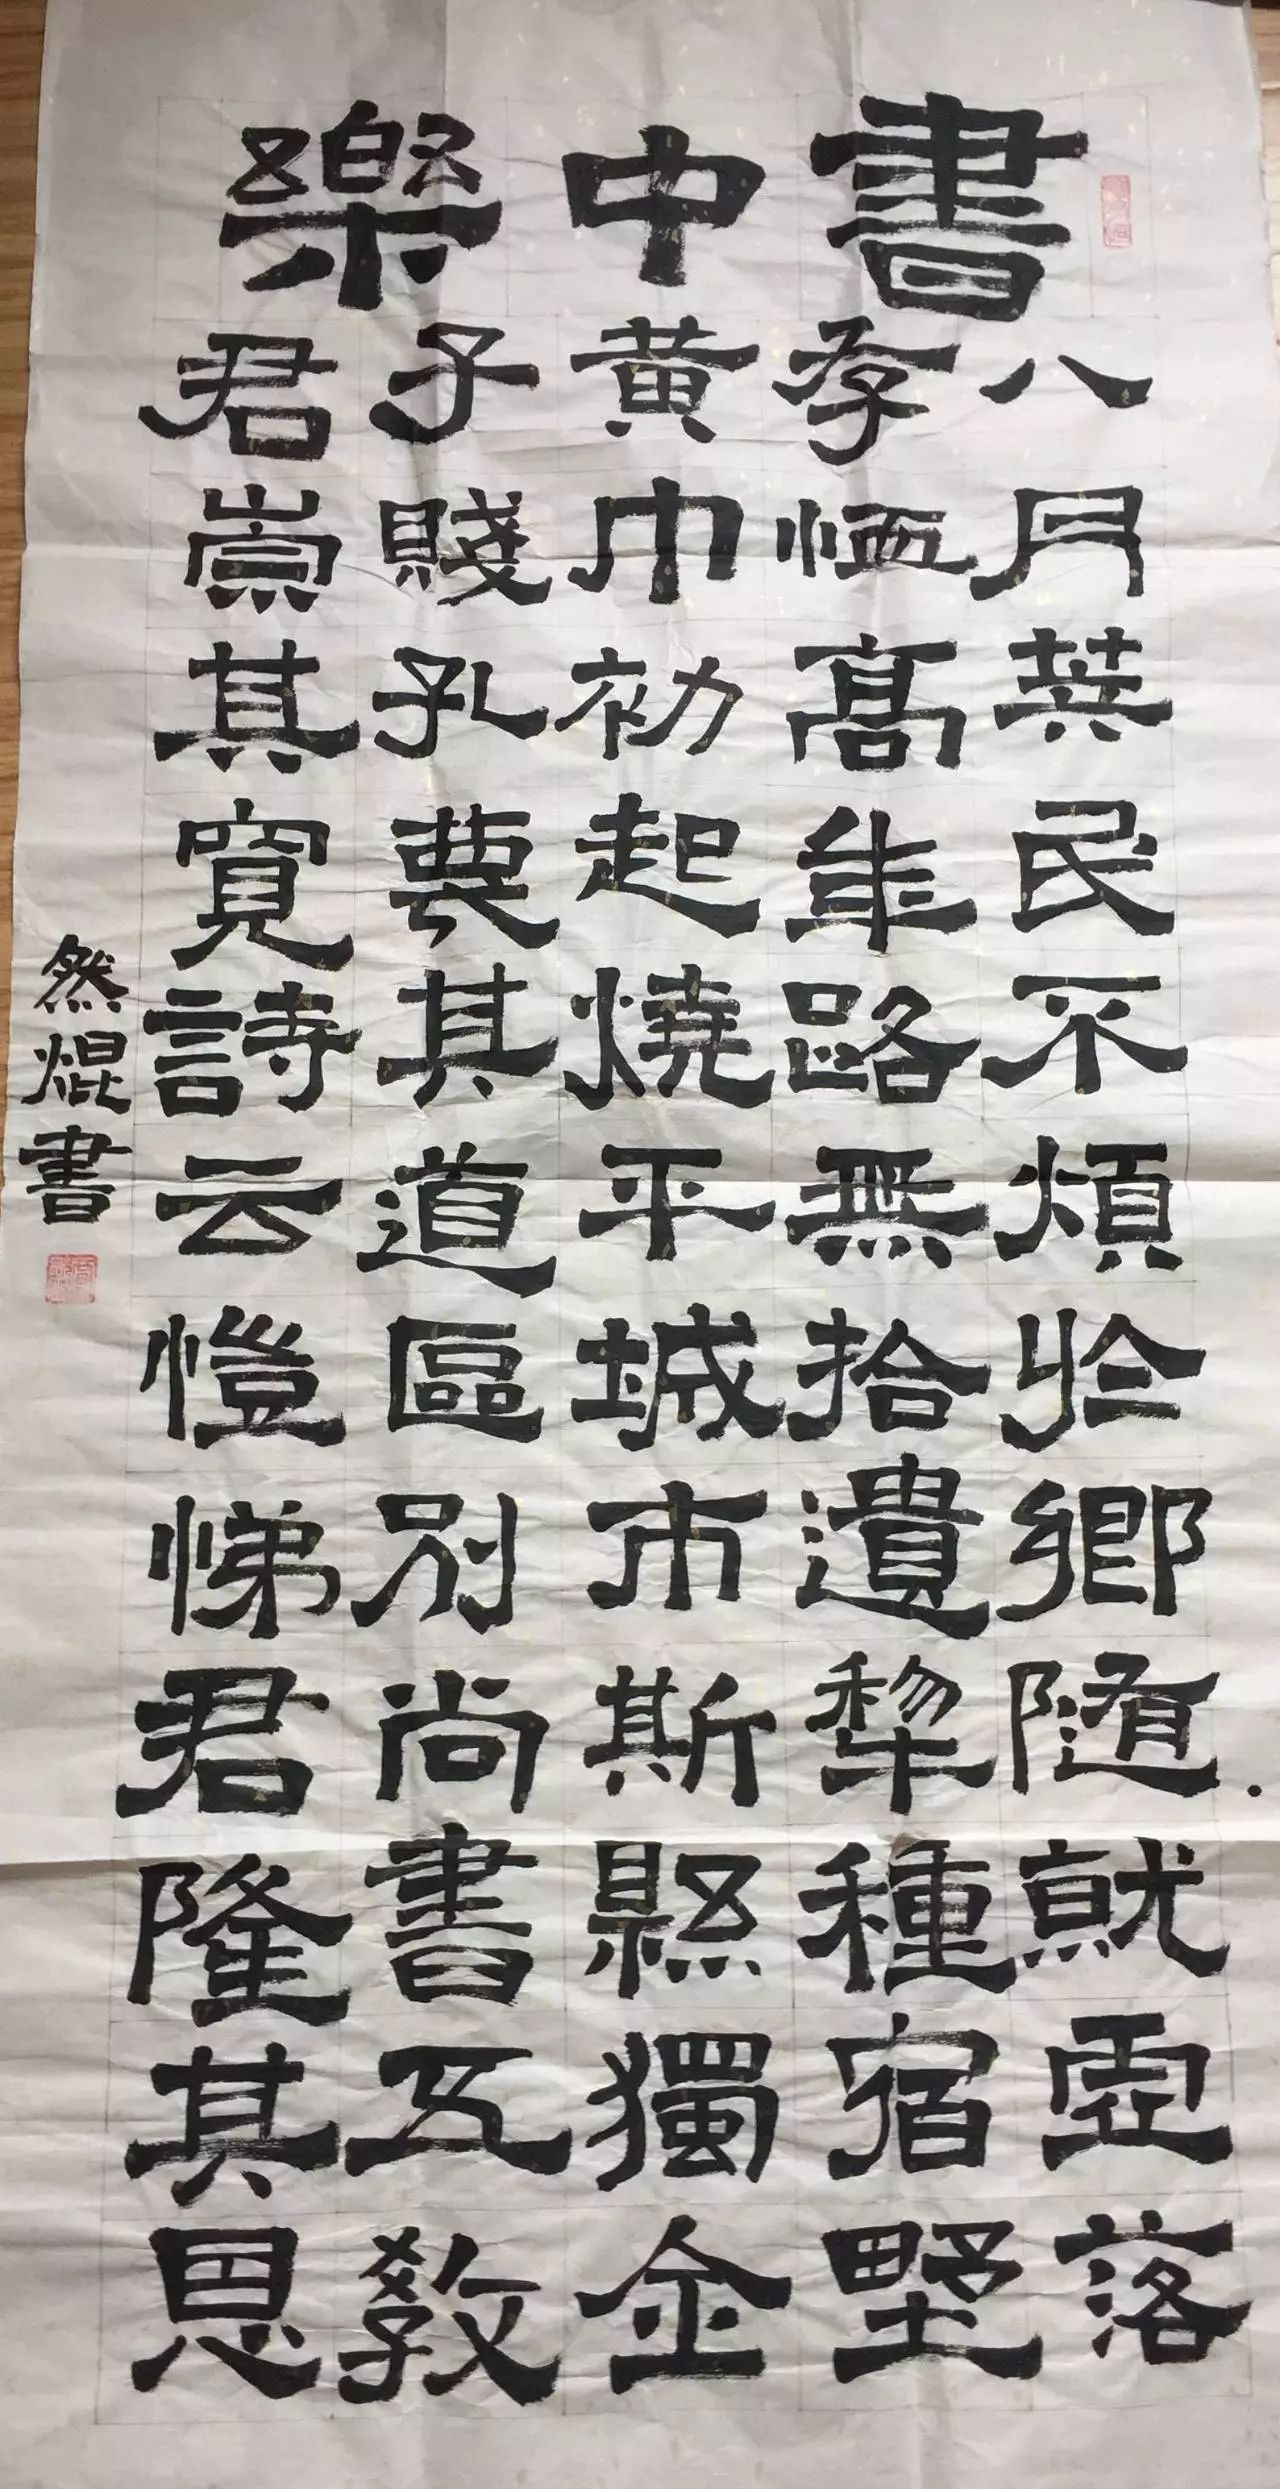 書中樂
八月筭民不煩於鄉隨就虛落
存恤高年路無拾遺犂種宿野
黃巾初起燒平城市斯縣獨全
子賤孔蔑其道區別尚書五教
君崇其寬詩云愷悌君隆其恩
然焜書